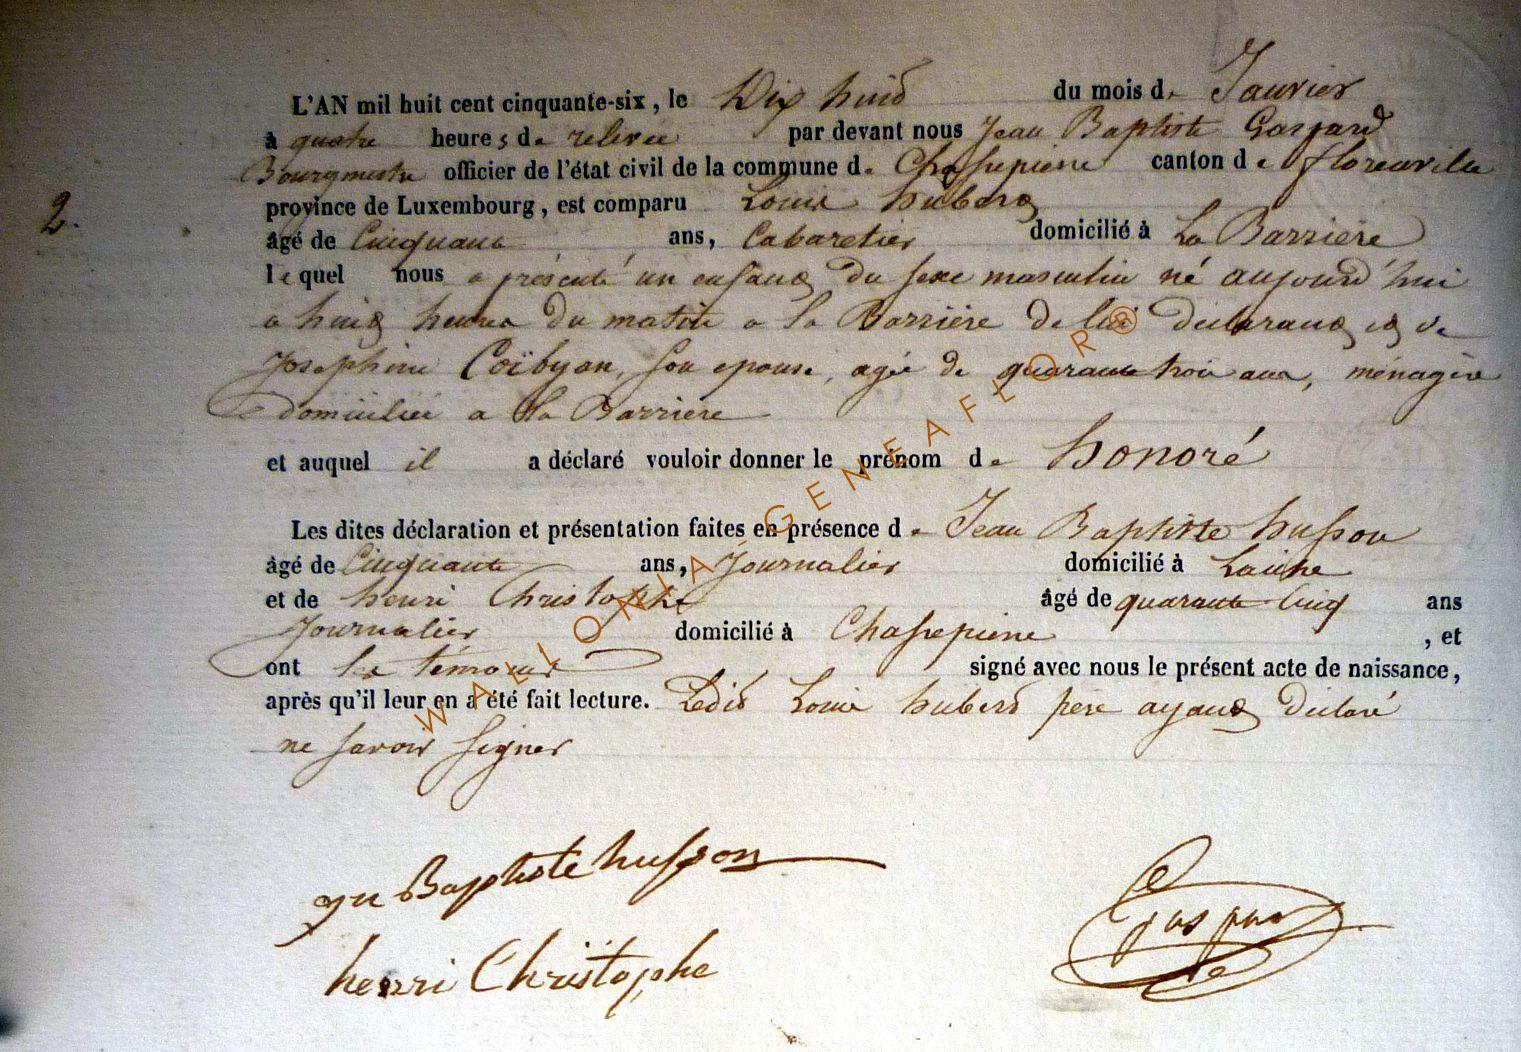 L'AN mil huit cent cinquante-six, le Dix huit du mois de Janvier
à quatre heures de relevée par devant nous Jean Baptiste Gaspard
Bourgmestre officier de l'état civil de la commune de Chassepierre canton de florenville
2. province de Luxembourg, est comparu Louis hubert
âgé de Cinquante ans, Cabaretier domicilié à La Barrière
lequel nous a présenté un enfant du sexe masculin né aujourd'hui
a huit heures du matin a la Barrière de lui déclarant et de
Josephine Coïbyon, son epouse, agée de quarante trois ans, ménagère
domiciliée a la Barrière
et auquel il a déclaré vouloir donner le prénom de honoré
Les dites déclaration et présentation faites en présence de Jean Baptiste husson
âgé de Cinquante ans, Journalier domicilié à Laiche
et de henri Christophe âgé de quarante Cinq ans
Journalier domicilié à Chassepierre , et
ont les témoins signé avec nous le présent acte de naissance,
après qu'il leur en a été fait lecture. Ledit Louis hubert père ayant déclaré
ne savoir signer
Baptiste husson
henri Christophe
Gaspard
WALLONIA-GENEAFLOR®